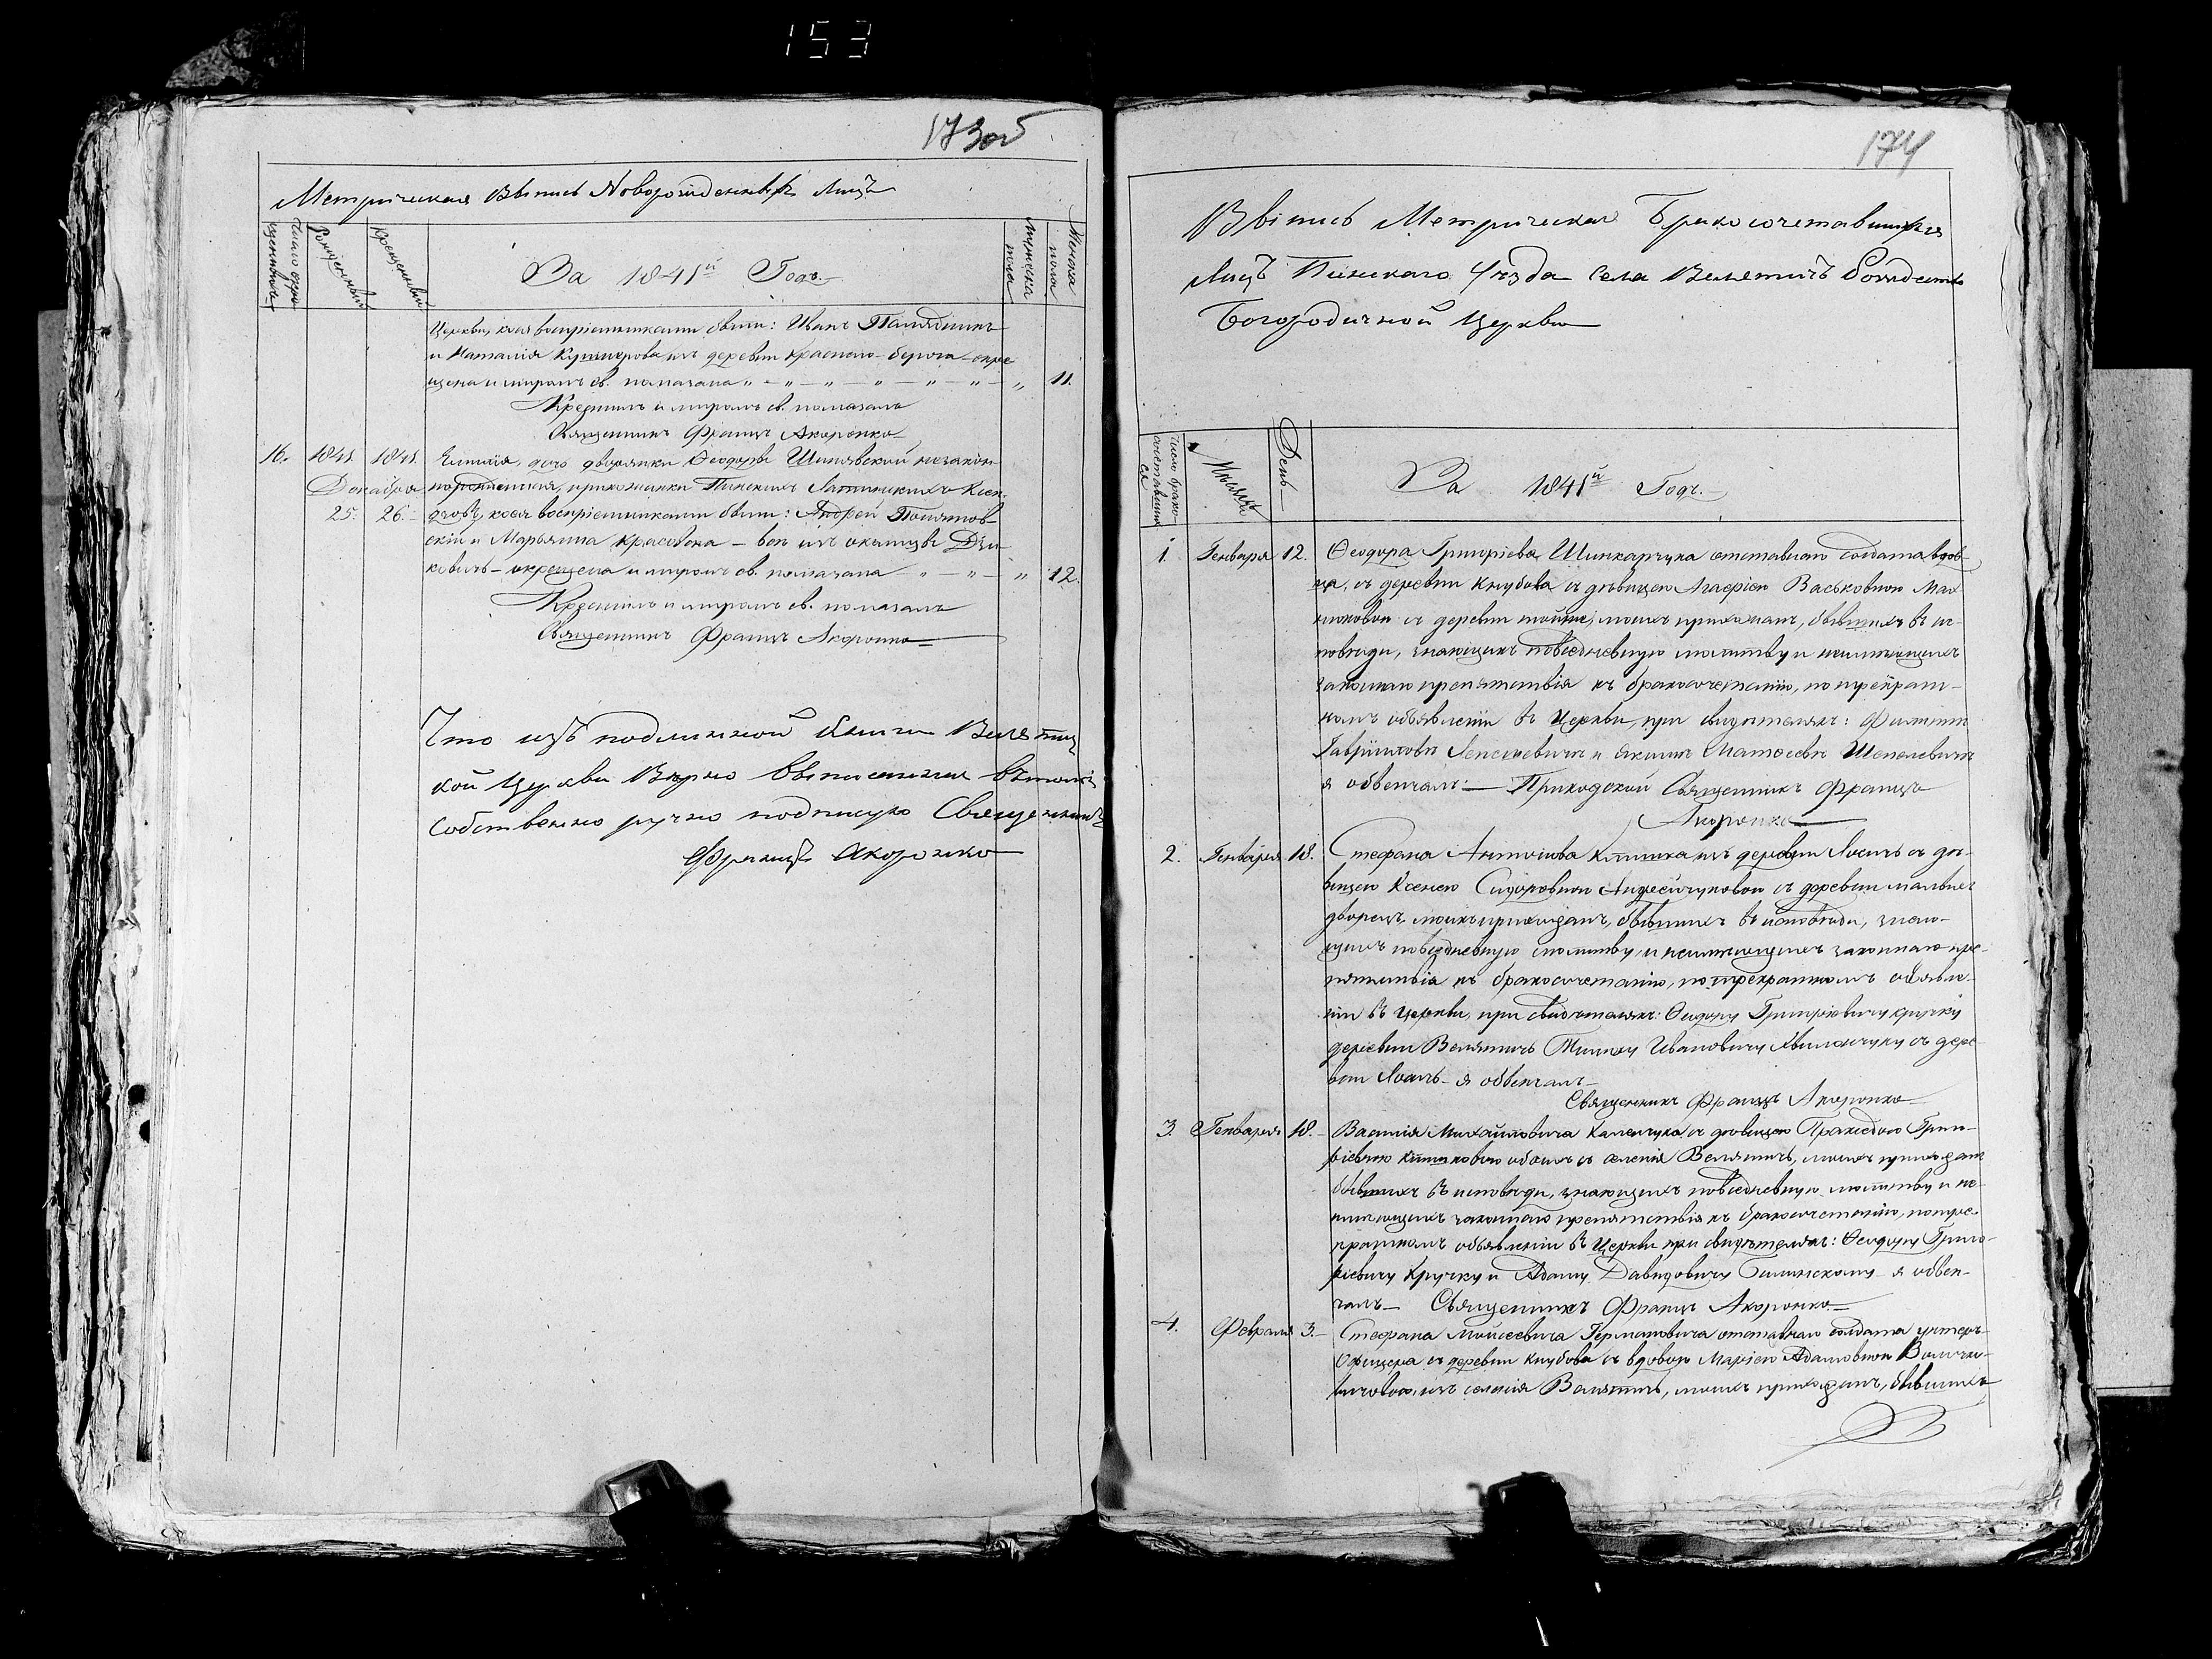 153
173об
Метрическая Выпись Новорожденныхъ Лицъ
Число окре-
щенныхъ
Рожденный
Крещенный
Мужеска
пола
Женска
пола
За 1841й Годъ
Церкви, коея воспріемниками были: Иванъ
и Наталія из деревни Краснаго-берега-окре
щена и миромъ св. помазана " - " - " - " - " - " - " 11.
Крестилъ и миромъ св. помазалъ
Священникъ Францъ Акоронко
16. 1841. 1841. дочь дворянки Ѳеодоры незакон-
Декабря норожденная, прихожанки Пинскихъ Латинскихъ Ксен-
25. 26. дзовъ, коея воспріемниками были: Андрей
скій и Марьянна - всѣ изъ околицы
ковичъ - окрещена и миромъ св. помазана - " - " - " 12.
Крестилъ и миромъ св. помазалъ
Священникъ Францъ Акоронко
Что изъ подлинной книги Велятиц
кой Церкви Вѣрно выписанная въ томъ
Собственно ручно подписую Священникъ
Францъ Акоронко
174
Выпись Метрическая Бракосочетавшихся
Лицъ Пинскаго Уѣзда Села Велятичъ Рождество
Богородичной Церкви
Число брако-
сочетавших
ся
Мѣсяцъ
День
За 1841й Годъ.
1. Генваря 12. Ѳеодора Григоріева Шинкарчука отставнаго солдата вдов-
ца, съ деревни Кнубова съ дѣвицею Агафіею Васьковною Мах
нюковою съ деревни тойже, моихъ прихожанъ, бывшихъ въ ис-
повѣди, знающихъ повседневную молитву и неимѣющихъ
законнаго препятствія къ бракосочетанію, по трейкрат-
номъ объявленіи въ Церкви, при свидѣтеляхъ: Филиппъ
и Якимъ Матѳеевъ Шепелевичъ
я обвенчалъ - Приходскій Священникъ Францъ
Акоронко
2. Генваря 18. Стефана Антонова изъ деревни съ дѣ-
вицею Ксенею Сидоровною съ деревни малыхъ
дворецъ, моихъ прихожанъ, бывшихъ въ исповѣди, знаю-
щихъ повседневную молитву, и неимѣющихъ законнаго пре-
пятствія къ бракосочетанію, по трекратномъ объявле-
ніи въ Церкви, при свидѣтеляхъ: Ѳеодору Григоріевичу Кручку
деревни Велятичъ Тимоху Ивановичу съ дере
вни - я обвенчалъ -
Священникъ Францъ Акоронко
3. Генваря 18. - Василія Михайловича съ дѣвицею Праксѣдою Григо-
ріевною обоихъ съ селенія Велятичъ, моихъ прихожанъ
бывшихъ въ исповѣди, знающихъ повседневную молитву и не-
имѣющихъ законнаго препятствія къ бракосочетанію, по тре-
кратномъ объявленіи въ Церкви при свидѣтеляхъ: Ѳеодору Григо-
ріевичу Кручку и Адаму Давидовичу Билинскому я обвен-
чалъ - Священникъ Францъ Акоронко
4. Февраля 3. - Стефана Мойсеевича Германовича отставнаго солдата унтеръ-
Офицера съ деревни Кнубова съ вдовою Маріею Адамовною
изъ селенія Велятичъ, моихъ прихожанъ, бывшихъ